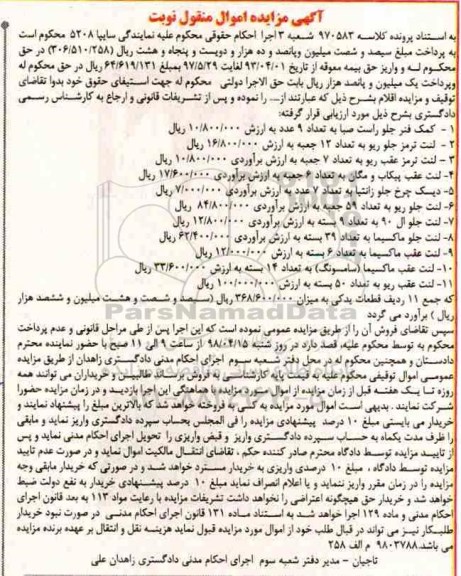 آگهی مزایده اموال منقول نوبت
به استناد پرونده کلاسه ۹۷۰۵۸۳ شعبه ۳ اجرا احکام حقوقی محکوم علیه نمایندگی سایپا ۵۲۰۸ محکوم است
به پرداخت مبلغ سیصد و شصت میلیون وپانصد و ده هزار و دویست و پنجاه و هشت ریال (۳۰۶/۵۱۰/۲۵۸) در حق
محکوم له و واریز حق بیمه معوقه از تاریخ ۹۳/۰۴/۰۱ لغایت ۹۷/۵/۲۹ بمبلغ ۶۴/۶۱۹/۱۳۱ ریال در حق محکوم له
وپرداخت یک میلیون و پانصد هزار ریال بابت حق الاجرا دولتی محکوم له جهت استیفای حقوق خود بدوا تقاضای
توقیف و مزایده اقلام بشرح ذیل که عبارتند از.... را نموده و پس از تشریفات قانونی و ارجاع به کارشناس رسمی
دادگستری بشرح ذیل مورد ارزیابی قرار گرفته:
۱ - کمک فنر جلو راست صبا به تعداد ۹ عدد به ارزش ۱۰/۸۰۰/۰۰۰ ریال
۲ - لنت ترمز جلو ریو به تعداد ۱۲ جعبه به ارزش ۱۶/۸۰۰/۰۰۰ ریال
۳ - لنت ترمز عقب ریو به تعداد ۷ جعبه به ارزش برآوردی ۱۰/۸۰۰/۰۰۰ ریال
۴- لنت عقب پیکاب و مگان به تعداد ۶ جعبه به ارزش برآوردی ۱۷/۶۰۰/۰۰۰ ریال
۵- دیسک چرخ جلو زانتیا به تعداد ۷ عدد به ارزش برآوردی ۷/۰۰۰/۰۰۰ ریال
۶- لنت جلو ریو به تعداد ۵۹ جعبه به ارزش برآوردی ۸۴/۸۰۰/۰۰۰ ریال
۷- لنت جلو ال ۹۰ به تعداد ۹ بسته به ارزش برآوردی ۱۲/۸۰۰/۰۰۰ ریال
۸- لنت جلو ماکسیما به تعداد ۳۹ بسته به ارزش برآوردی ۶۲/۴۰۰/۰۰۰ ریال
۹- لنت عقب ماکسیما به تعداد ۶ بسته به ارزش ۱۲/۰۰۰/۰۰۰ ریال
۱۰- لنت عقب ماکسیما (سامسونگ) به تعداد ۱۴ بسته به ارزش ۳۳/۶۰۰/۰۰۰ ریال
۱۱- لنت عقب ریو به تعداد ۵۰ بسته به ارزش ۱۰۰/۰۰۰/۰۰۰ ریال
که جمع ۱۱ ردیف قطعات یدکی به میزان ۳۶۸/۶۰۰/۰۰۰ ریال (سیصد و شصت و هشت میلیون و ششصد هزار
ریال ) برآورد می گردد
سپس تقاضای فروش آن را از طریق مزایده عمومی نموده است که این اجرا پس از طی مراحل قانونی و عدم پرداخت
محکوم به توسط محکوم علیه، قصد دارد در روز شنبه ۹۸/۰۴/۱۵ از ساعت ۹ الی ۱۱ صبح با حضور نماینده محترم
دادستان و همچنین محکوم له در محل دفتر شعبه سوم اجرای احکام مدنی دادگستری زاهدان از طریق مزایده
عمومی اموال توقیفی محکوم علیه را به قیمت پایه کارشناسی بفروش برساند طالبین و خریداران می توانند همه
روزه تا یک هفته قبل از زمان مزایده از اموال مورد مزایده با هماهنگی این اجرا بازدید و در زمان مزایده حضورا
شرکت نمایند. بدیهی است اموال مورد مزایده به کسی به فروخته خواهد شد که بالاترین مبلغ را پیشنهاد نمایند و
خریدار می بایستی مبلغ ۱۰ درصد پیشنهادی مزایده را فی المجلس بحساب سپرده دادگستری واریز نماید و مابقی
را ظرف مدت یکماه به حساب سپرده دادگستری واریز و قبض واریزی را تحویل اجرای احکام مدنی نماید و پس
از تایید مزایده توسط دادگاه محترم صادر کننده حکم ، تقاضای انتقال مالکیت اموال نماید و در صورت عدم تایید
مزایده توسط دادگاه ، مبلغ ۱۰ درصدی واریزی به خریدار مسترد خواهد شد و در صورتی که خریدار مابقی وجه
مزایده را در زمان مقرر واریز ننماید و یا اعلام انصراف نماید مبلغ ۱۰ درصد پیشنهادی خریدار به نفع دولت ضبط
خواهد شد و خریدار حق هیچگونه اعتراضی را نخواهد داشت تشریفات مزایده با رعایت مواد ۱۱۳ به بعد قانون اجرای
احکام مدنی و ماده ۱۲۹ اجرا خواهد شد به استناد ماده ۱۳۱ قانون اجرای احکام مدنی در صورت نبود خریدار
طلبکار نیز می تواند در قبال طلب خود از اموال مورد مزایده قبول نماید هزینه نقل و انتقال بر عهده برنده مزایده
می باشد.۹۸۰۳۷۸۸ م الف ۲۵۸
تاجیان - مدیر دفتر شعبه سوم اجرای احکام مدنی دادگستری زاهدان علی
ParsNamadData